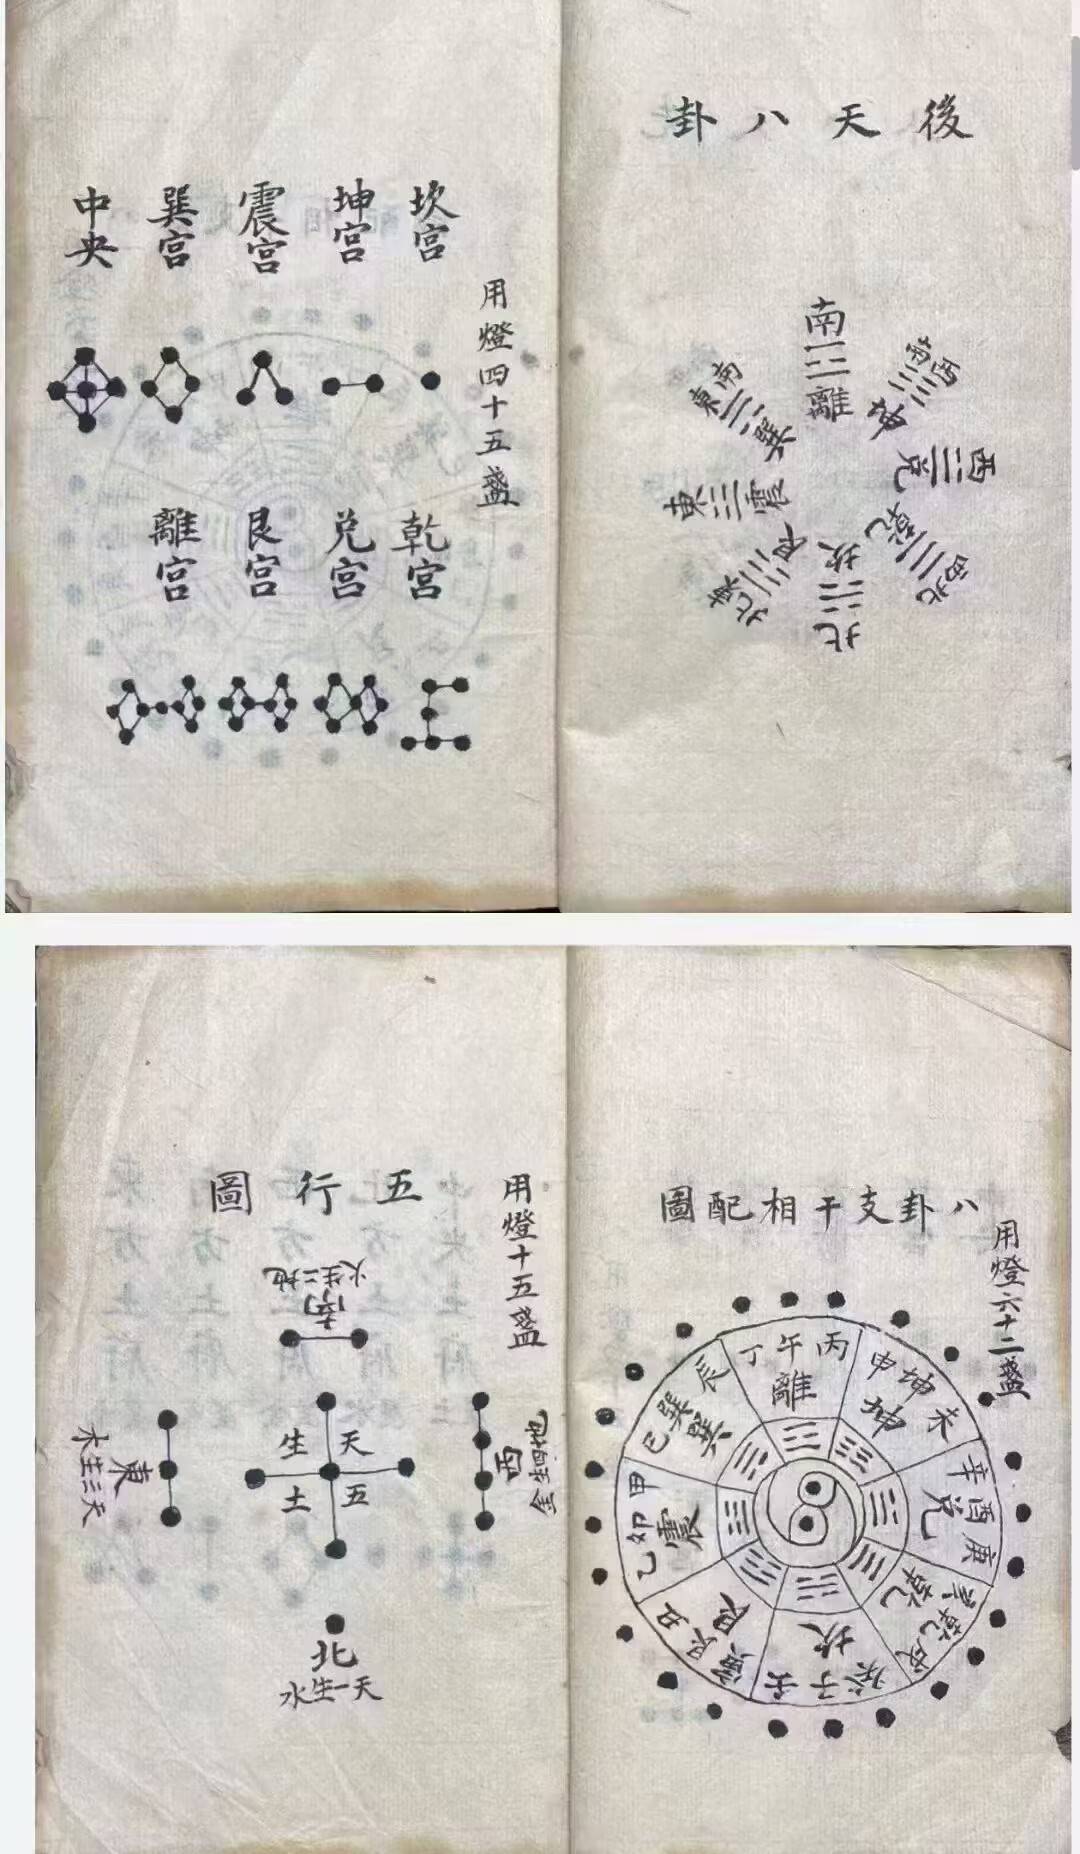 後天八卦
南
離
西南
坤
西
兌
西北
乾
北
坎
東北
艮
東
震
東南
巽
用燈四十五盞
坎宮
坤宮
震宮
巽宮
中央
乾宮
兌宮
艮宮
離宮
八卦支干相配圖
用燈六十二盞
丙午丁
離
未坤申
坤
庚酉辛
兌
戌乾
乾
壬子癸
坎
丑艮寅
艮
甲卯乙
震
辰巽巳
巽
用燈十五盞
五行圖
南
地二生火
天五
生土
東
天三生木
西
北
天一生水